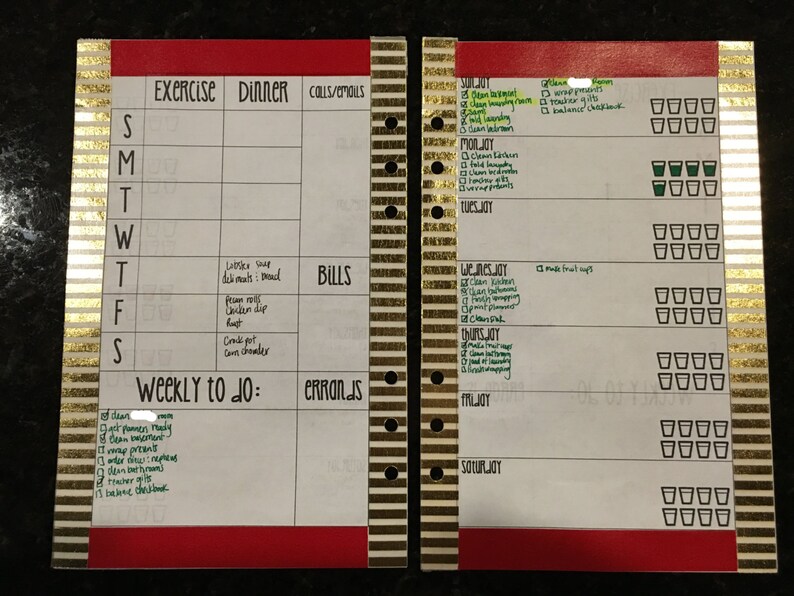 Exercise Dinner calls/emails
S
M
T
W
T
lobster soup
deli meats : bread
Bills
F
pecan rolls
chicken dip
Roast
S
Crockpot
corn chowder
Weekly to do:
errands
clean room
get planner ready
clean basement
wrap presents
order nieces : nephews
clean bathrooms
teacher gifts
balance checkbook
sunday
clean basement
clean laundry room
fold laundry
clean bedroom
clean room
wrap presents
teacher gifts
balance checkbook
monday
clean kitchen
fold laundry
clean bedroom
teacher gifts
wrap presents
tuesday
wednesday
clean kitchen
clean bathrooms
finish wrapping
print planners
clean
make fruit cups
thursday
make fruit cups
clean bathroom
load of laundry
finish wrapping
friday
saturday